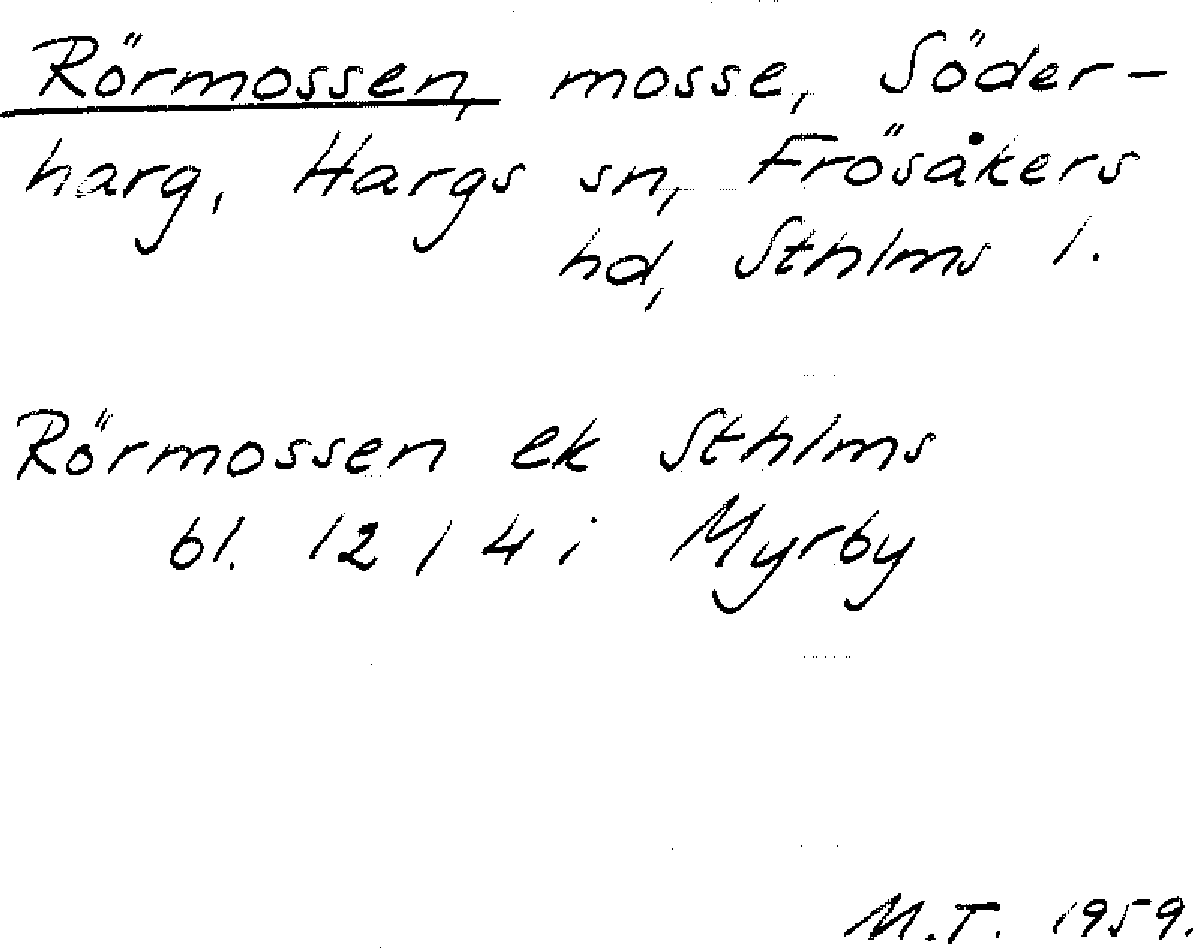 Rörmossen, mosse, Söder-
harg, Hargs sn, Frösåkers
hd, Sthlms l.
Rörmossen ek Sthlms
bl. 12 / 4 i Myrby
M.T. 1959.